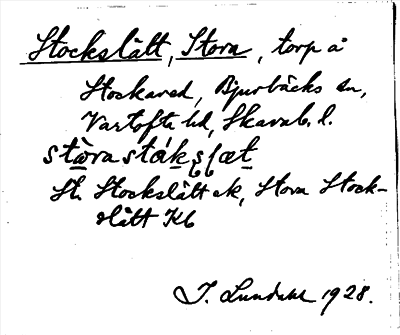 Stockslätt, Stora, torp å
Stockared, Bjurbäcks sn,
Vartofta hd, Skarab. l.
stòra stákslæt
St. Stockslätt ek, Stora Stock-
slätt Kb
I. Lundahl 1928.